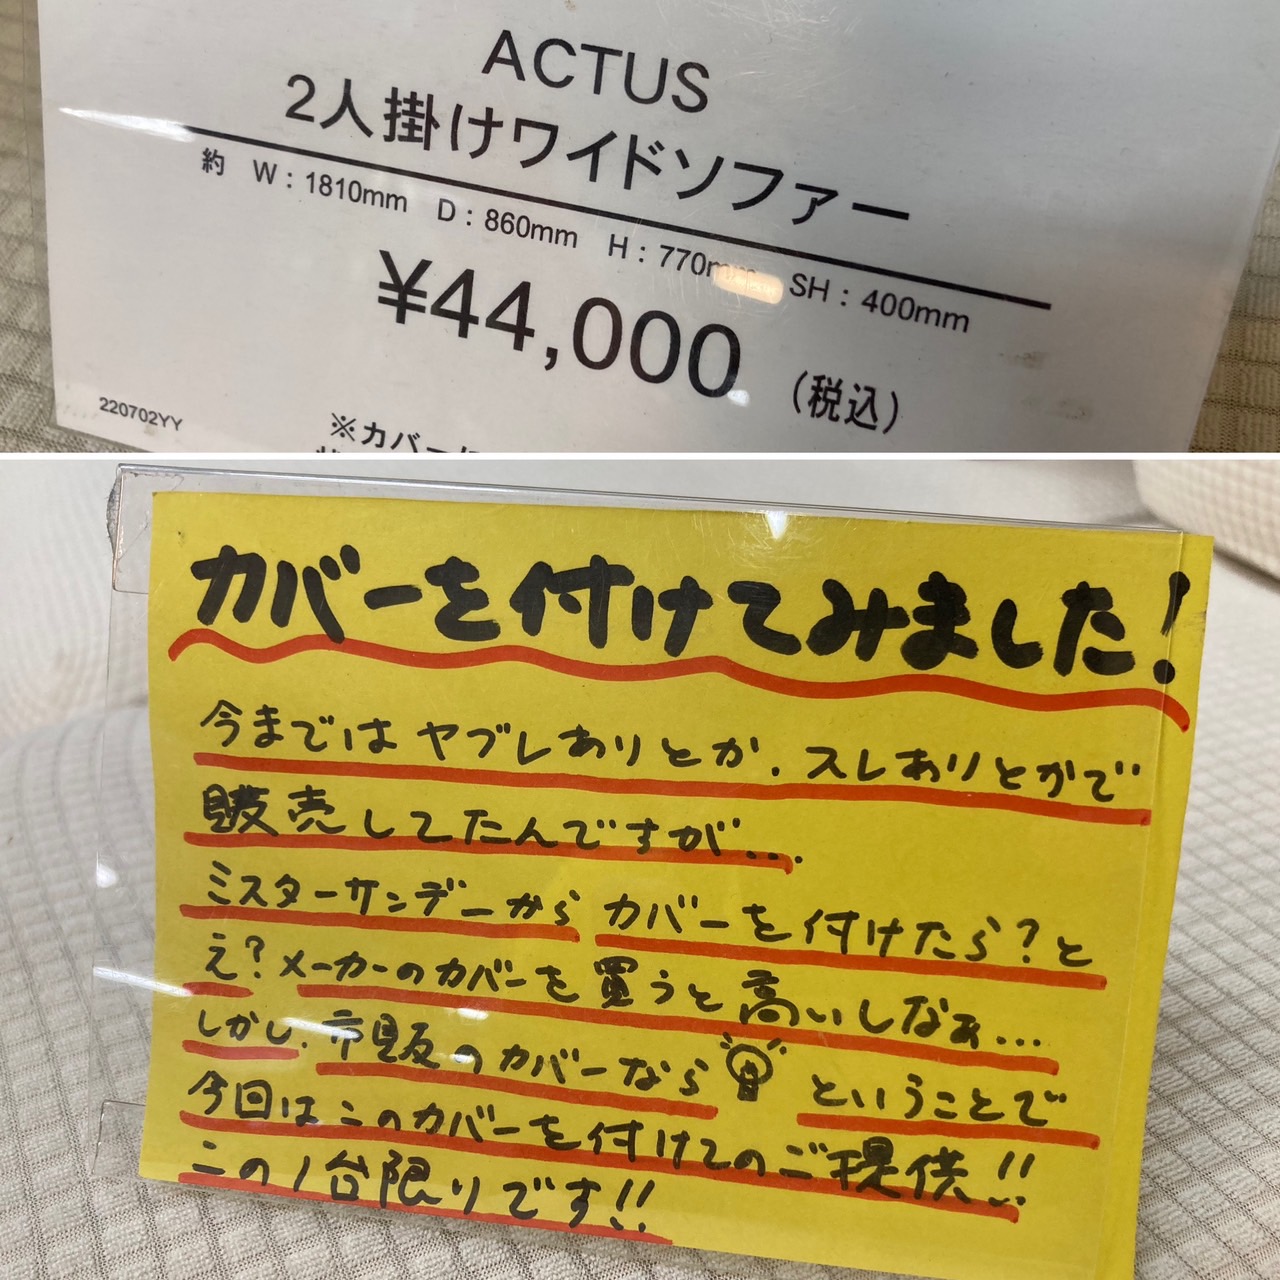 ACTUS
2人掛けワイドソファー
約 W：1810mm D：860mm H：770mm SH：400mm
¥44,000 （税込）
220702YY
※カバーに
カバーを付けてみました！
今まではヤブレありとか、スレありとかで
販売してたんですが...
ミスターサンデーから カバーを付けたら？と
え？メーカーのカバーを買うと高いしなぁ...
しかし、市販のカバーなら ということで
今回はこのカバーを付けてのご提供！！
この1台限りです！！